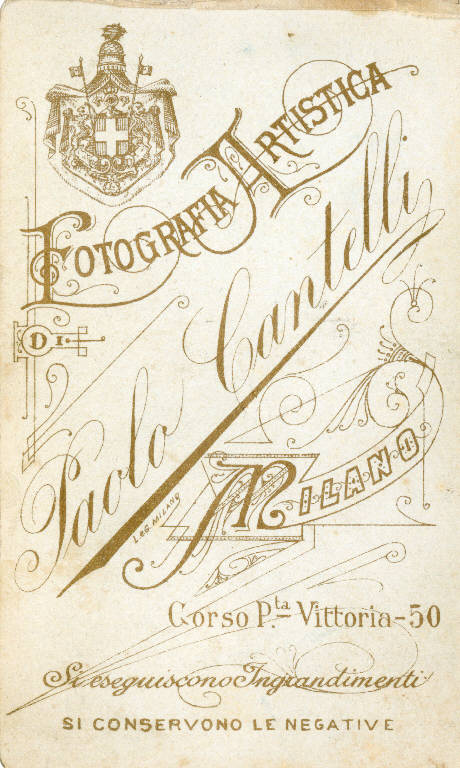 Fotografia Artistica
Di
Paolo Cantelli
L&G. MILANO
Milano
Corso P.ta Vittoria-50
Si eseguiscono Ingrandimenti
SI CONSERVONO LE NEGATIVE